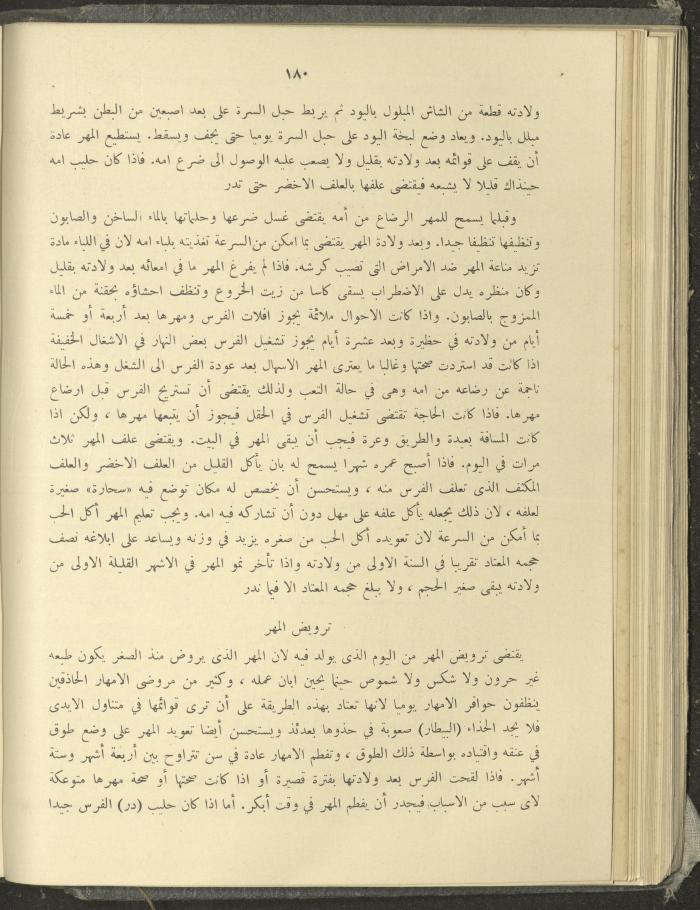 ١٨٠
ولادته قطعة من الشاش المبلول باليود ثم يربط حبل السرة على بعد اصبعين من البطن بشريط
مبلل باليود. ويعاد وضع لبخة اليود على حبل السرة يوميا حتى يجف ويسقط. يستطيع المهر عادة
أن يقف على قوائمه بعد ولادته بقليل ولا يصعب عليه الوصول الى ضرع امه. فاذا كان حليب امه
حينذاك قليلا لا يشبعه فيقتضى علفها بالعلف الاخضر حتى تدر
وقبلما يسمح للمهر الرضاع من أمه يقتضى غسل ضرعها وحلماتها بالماء الساخن والصابون
وتنظيفها تنظيفا جيدا. وبعد ولادة المهر يقتضى بما امكن من السرعة تغذيته بلباء امه لان في اللباء مادة
تزيد مناعة المهر ضد الامراض التى تصيب كرشه. فاذا لم يفرغ المهر ما في امعائه بعد ولادته بقليل
وكان منظره يدل على الاضطراب يسقى كاسا من زيت الخروع وتنظف احشاؤه بحقنة من الماء
الممزوج بالصابون. واذا كانت الاحوال ملائمة يجوز افلات الفرس ومهرها بعد أربعة أو خمسة
أيام من ولادته في حظيرة وبعد عشرة أيام يجوز تشغيل الفرس بعض النهار في الاشغال الخفيفة
اذا كانت قد استردت صحتها وغالبا ما يعترى المهر الاسهال بعد عودة الفرس الى الشغل وهذه الحالة
ناجمة عن رضاعه من امه وهى في حالة التعب ولذلك يقتضى أن تستريح الفرس قبل ارضاع
مهرها. فاذا كانت الحاجة تقتضى تشغيل الفرس في الحقل فيجوز أن يتبعها مهرها ، ولكن اذا
كانت المسافة بعيدة والطريق وعرة فيجب أن يبقى المهر في البيت. ويقتضى علف المهر ثلاث
مرات في اليوم. فاذا أصبح عمره شهرا يسمح له بان يأكل القليل من العلف الاخضر والعلف
المكثف الذى تعلف الفرس منه ، ويستحسن أن يخصص له مكان توضع فيه «سحارة» صغيرة
لعلفه ، لان ذلك يجعله يأكل علفه على مهل دون أن تشاركه فيه امه. ويجب تعليم المهر أكل الحب
بما أمكن من السرعة لان تعويده أكل الحب من صغره يزيد في وزنه ويساعد على ابلاغه نصف
حجمه المعتاد تقريبا في السنة الاولى من ولادته واذا تأخر نمو المهر في الاشهر القليلة الاولى من
ولادته يبقى صغير الحجم ، ولا يبلغ حجمه المعتاد الا فيما ندر
ترويض المهر
يقتضى ترويض المهر من اليوم الذى يولد فيه لان المهر الذى يروض منذ الصغر يكون طبعه
غير حرون ولا شكس ولا شموص حينما يحين ابان عمله ، وكثير من مروضى الامهار الحاذقين
ينظفون حوافر الامهار يوميا لانها تعتاد بهذه الطريقة على أن ترى قوائمها في متناول الايدى
فلا يجد الحذاء (البيطار) صعوبة في حذوها بعدئذ ويستحسن أيضا تعويد المهر على وضع طوق
في عنقه واقتياده بواسطة ذلك الطوق ، وتفطم الامهار عادة في سن تتراوح بين أربعة أشهر وستة
أشهر. فاذا لقحت الفرس بعد ولادتها بفترة قصيرة أو اذا كانت صحتها أو صحة مهرها متوعكة
لاى سبب من الاسباب فيجدر أن يفطم المهر في وقت أبكر. أما اذا كان حليب (در) الفرس جيدا